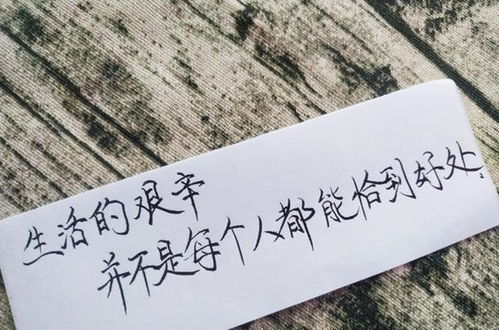 生活的艰辛
并不是每个人都能恰到好处.